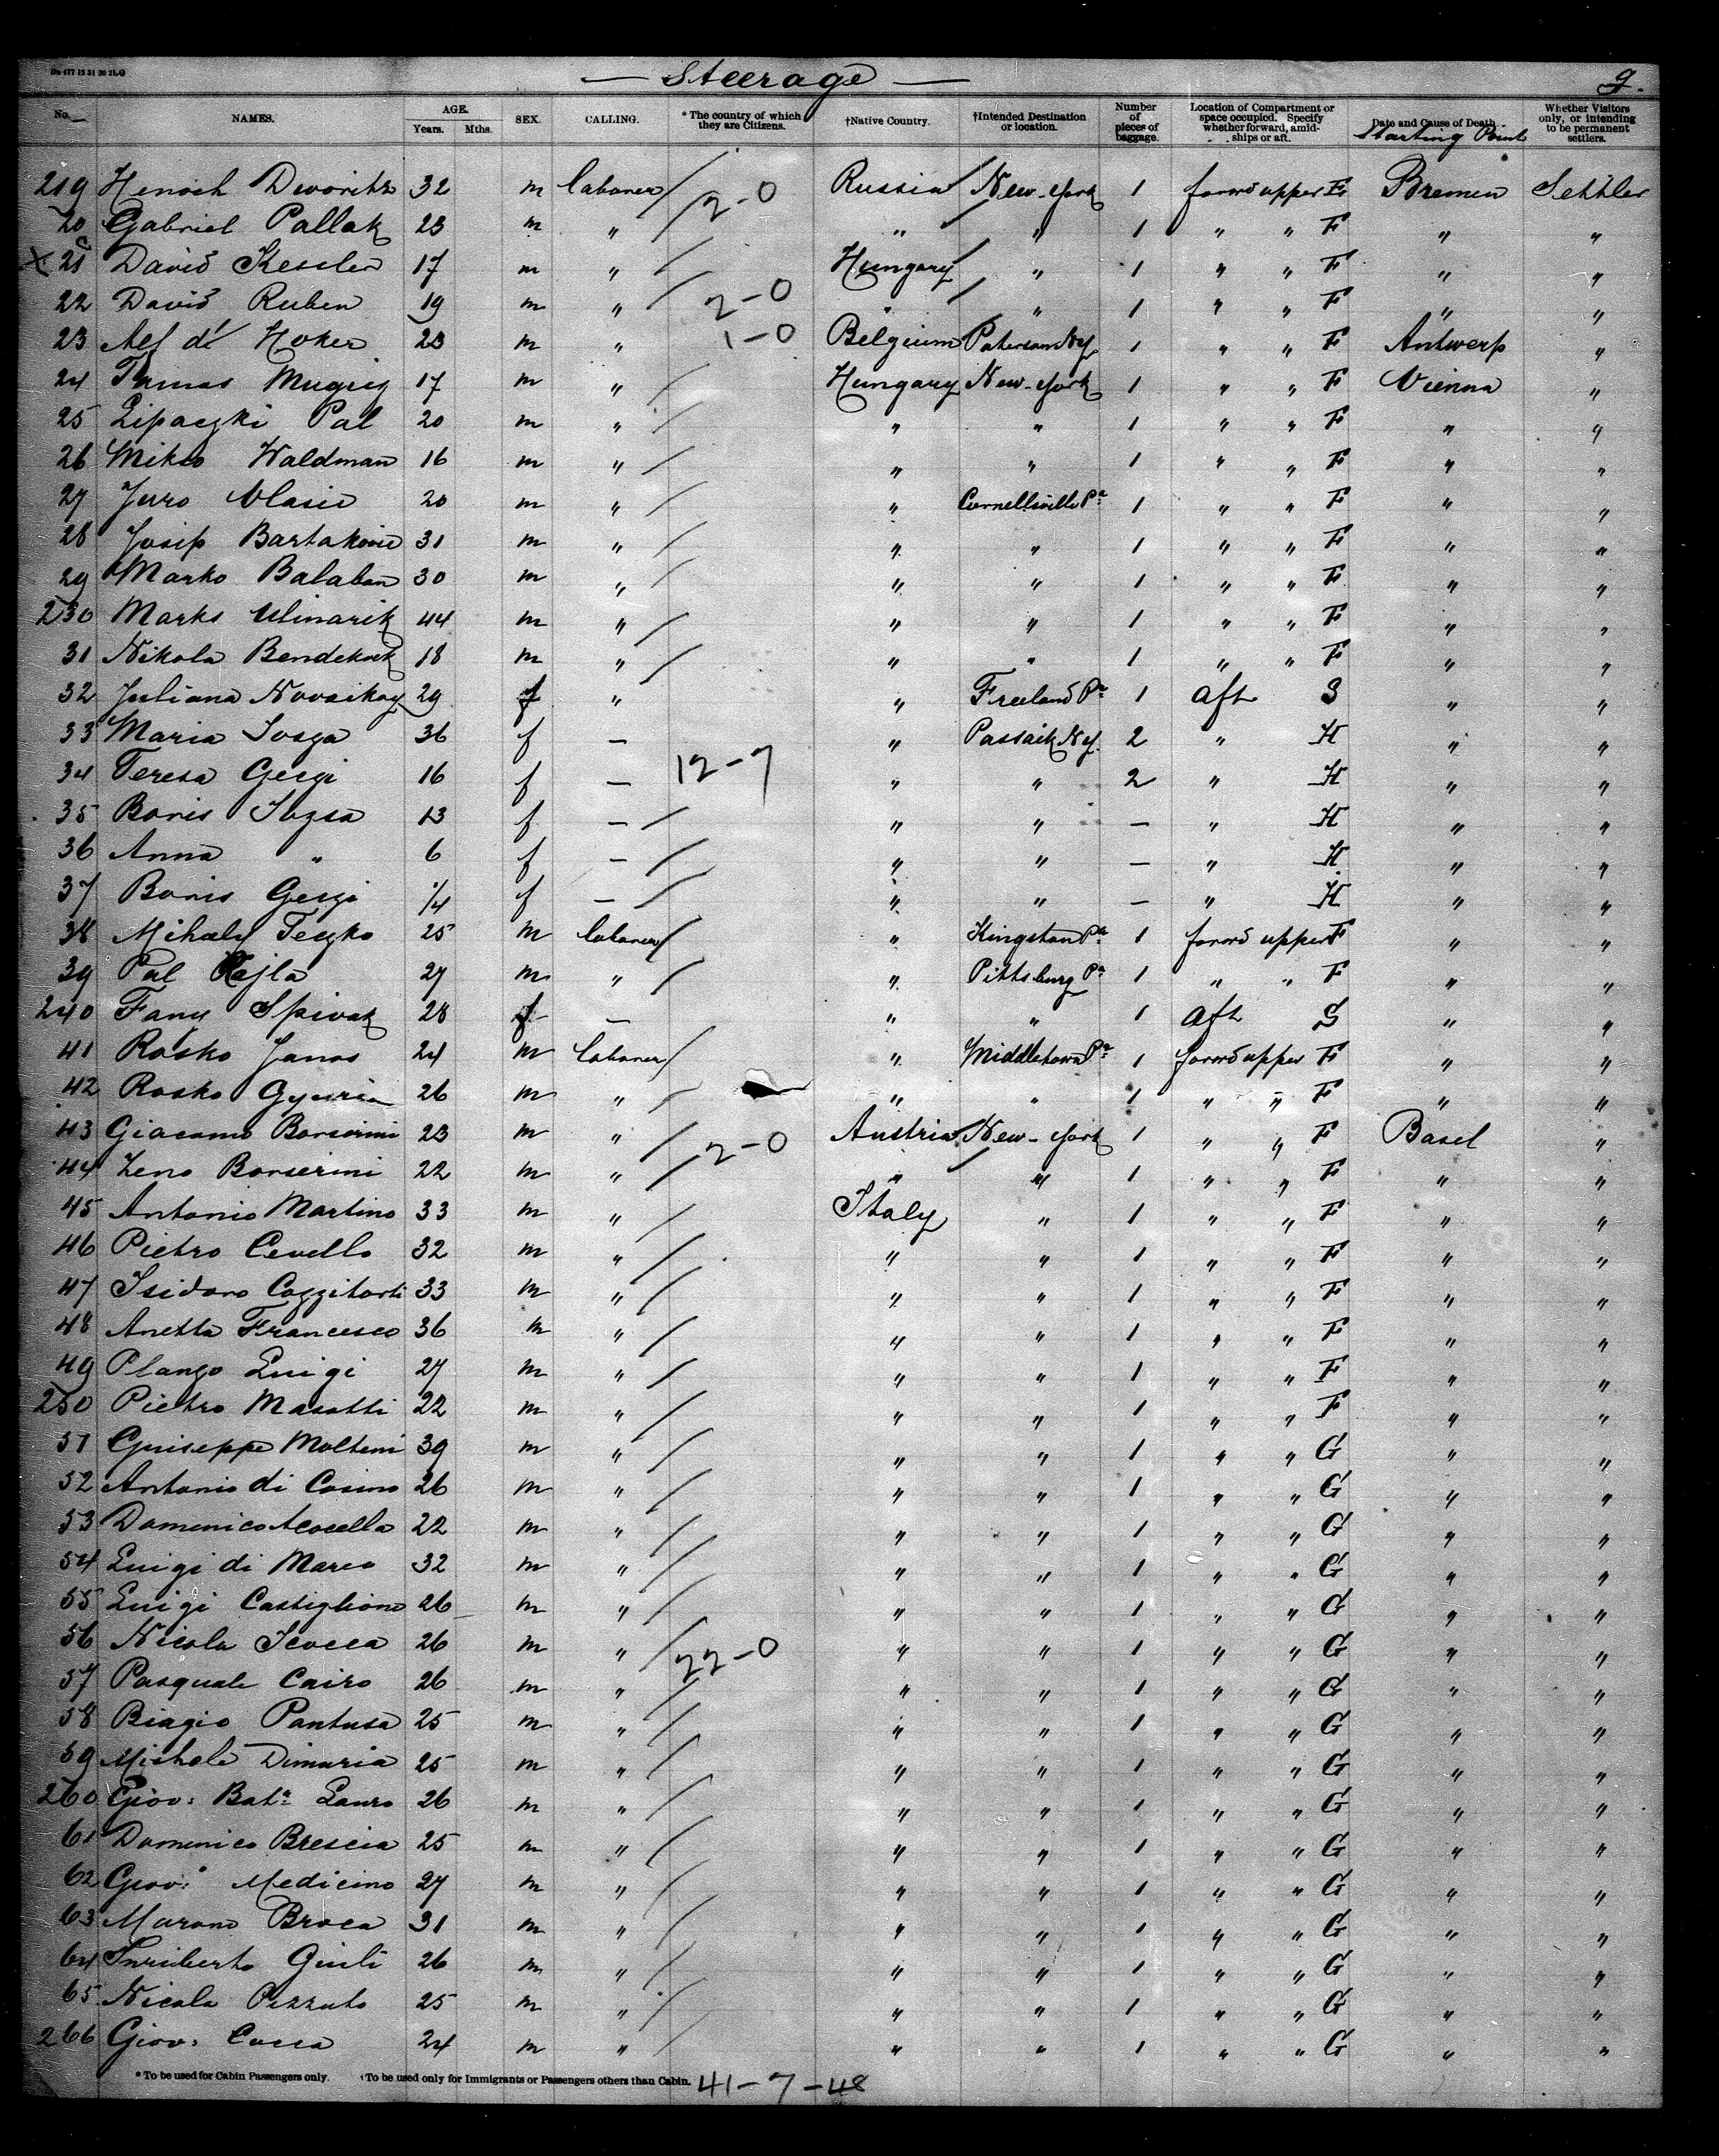 — Steerage — 9.
No. NAMES. AGE. Years. Mths. SEX. CALLING. *The country of which they are Citizens. †Native Country. †Intended Destination or location. Number of pieces of baggage. Location of Compartment or space occupied. Specify whether forward, amidships or aft. Date and Cause of Death. Starting Point Whether Visitors only, or intending to be permanent settlers.
219 Henoch Dworitz 32 m laborer / Russia / New-York 1 forwd upper F Bremen Settler
20 Gabriel Pallak 23 m " / 2-0 " / " 1 " " F " "
X 21 David Kessler 17 m " / Hungary / " 1 " " F " "
22 David Ruben 19 m " / 2-0 " / " 1 " " F " "
23 Hoker 23 m " 1-0 Belgium / Paterson NY. 1 " " F Antwerp "
24 17 m " / Hungary New-York 1 " " F Vienna "
25 Lipaczki Pal 20 m " / " " 1 " " F " "
26 Waldman 16 m " / " " 1 " " F " "
27 Jurro Vlasic 20 m " / " Connellsville Pa 1 " " F " "
28 Josip Bartakovic 31 m " / " " 1 " " F " "
29 Marko Balaban 30 m " / " " 1 " " F " "
230 Marks Mlinarik 44 m " / " " 1 " " F " "
31 Nikola 18 m " / " " 1 " " F " "
32 Juliana 29 f " " Freeland Pa 1 aft S " "
33 Maria Josza 36 f — " Passaik NY. 2 " H " "
34 Teresa Gergi 16 f — 12-7 " " 2 " H " "
35 Boris 13 f — / " " — " H " "
36 Anna " 6 f — / " " — " H " "
37 Boris Gergi 1/4 f — / " " — " H " "
38 Mihaly Teczko 25 m laborer / " Kingston Pa 1 forwd upper F " "
39 Pal 27 m " / " Pittsburg Pa 1 " " F " "
240 Fany Spivak 28 f — " " 1 aft S " "
41 Rosko Janos 24 m laborer / " Middletown Pa 1 forwd upper F " "
42 Rosko 26 m " / " " 1 " " F " "
43 Giacomo Borserini 23 m " / 2-0 Austria / New-York 1 " " F Basel "
44 Zeno Borserini 22 m " / " / " 1 " " F " "
45 Antonio Martino 33 m " / Italy " 1 " " F " "
46 Pietro Cevello 32 m " / " " 1 " " F " "
47 Isidoro 33 m " / " " 1 " " F " "
48 Anetta Francesco 36 m " / " " 1 " " F " "
49 Plango Luigi 27 m " / " " 1 " " F " "
250 Pietro Masotti 22 m " / " " 1 " " F " "
51 Guiseppe Molteni 39 m " / " " 1 " " G " "
52 Antonio di Cosimo 26 m " / " " 1 " " G " "
53 Domenico Acocella 22 m " / " " 1 " " G " "
54 Luigi di Marco 32 m " / " " 1 " " G " "
55 Luigi Castiglione 26 m " / " " 1 " " G " "
56 Nicola Scocca 26 m " / 22-0 " " 1 " " G " "
57 Pasquale Cairo 26 m " / " " 1 " " G " "
58 Biagio Pantusa 25 m " / " " 1 " " G " "
59 Michele Dimaria 25 m " / " " 1 " " G " "
260 Giov: Bata Lauro 26 m " / " " 1 " " G " "
61 Domenico Brescia 25 m " / " " 1 " " G " "
62 Giov: Medicino 27 m " / " " 1 " " G " "
63 Broca 31 m " / " " 1 " " G " "
64 Giuli 26 m " / " " 1 " " G " "
65 Nicola Pizzuto 25 m " / " " 1 " " G " "
266 Giov: Cocca 24 m " / " " 1 " " G " "
*To be used for Cabin Passengers only. †To be used only for Immigrants or Passengers others than Cabin. 41-7-48